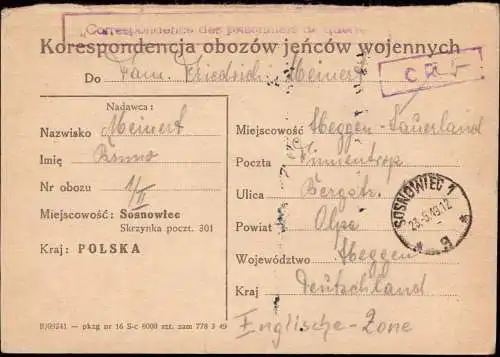 „Correspondence des prisonniers de guerre"
Korespondencja obozów jeńców wojennych
Do Fam. Friedrich Meinert
C R F
Nadawca:
Nazwisko Meinert
Imię Bruno
Nr obozu 1/II
Miejscowość: Sosnowiec
Skrzynka poczt. 301
Kraj: POLSKA
Miejscowość Heggen-Sauerland
Poczta Finnentrop
Ulica Bergstr.
Powiat Olpe
Województwo Heggen
Kraj Deutschland
Englische-Zone
SOSNOWIEC 1
23.5.49.12
* a *
B/09241 — pkzg nr 16 S-c 8000 szt. zam 778 3 49